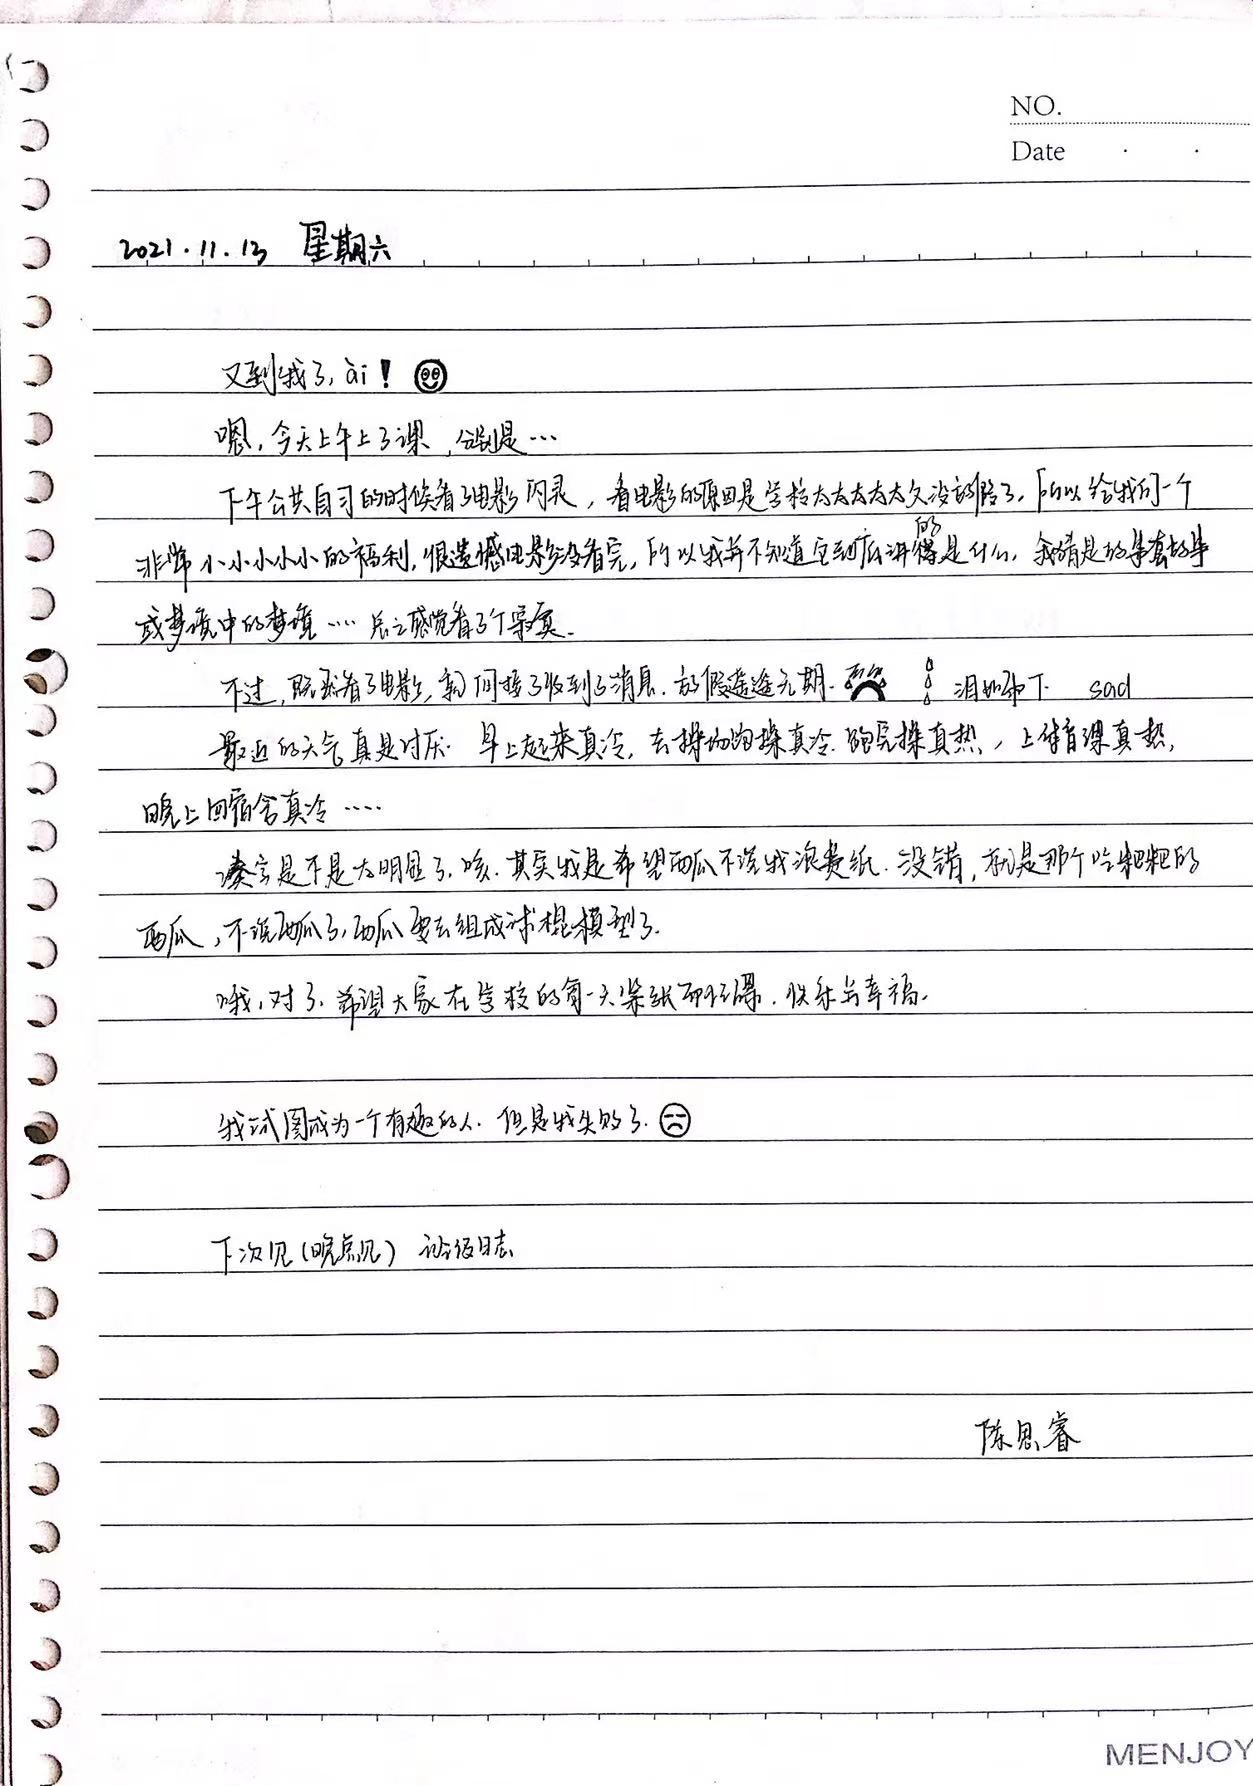 NO.
Date
2021.11.13 星期六
又到我了,ài!
嗯,今天上午上了课,分别是…
下午公共自习的时候看了电影闪灵,看电影的原因是学校太太太太太久没放假了,所以给我们一个
非常小小小小小的福利,很遗憾电影没看完,所以我并不知道它到底讲的是什么,我猜是故事套故事
或梦境中的梦境……总之感觉看了个寂寞.
不过,既然看了电影,就间接了收到了消息.放假遥遥无期. 泪如雨下. sad
最近的天气真是讨厌.早上起来真冷,去操场跑操真冷.跑完操真热,上体育课真热,
晚上回宿舍真冷……
凑字是不是太明显了,咳.其实我是希望西瓜不说我浪费纸.没错,就是那个吃粑粑的
西瓜,不说西瓜了,西瓜要去组成球棍模型了.
哦,对了.希望大家在学校的每一天.快乐与幸福.
我试图成为一个有趣的人.但是我失败了.
下次见(晚点见) 日志.
陈思睿
MENJOY